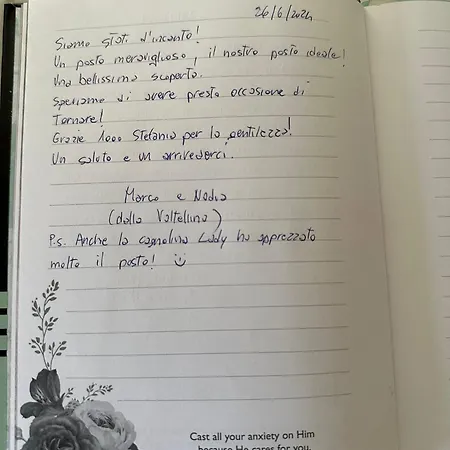 26/6/2024
Siamo stati d'incanto!
Un posto meraviglioso, il nostro posto ideale!
Una bellissima scoperta.
Speriamo di avere presto occasione di
Tornare!
Grazie 1000 Stefania per la gentilezza!
Un saluto e un arrivederci.
Marco e Nadia
(dalla Valtellina)
P.s. Anche la cagnolina Lady ha apprezzato
molto il posto! ☺
Cast all your anxiety on Him
because He cares for you.